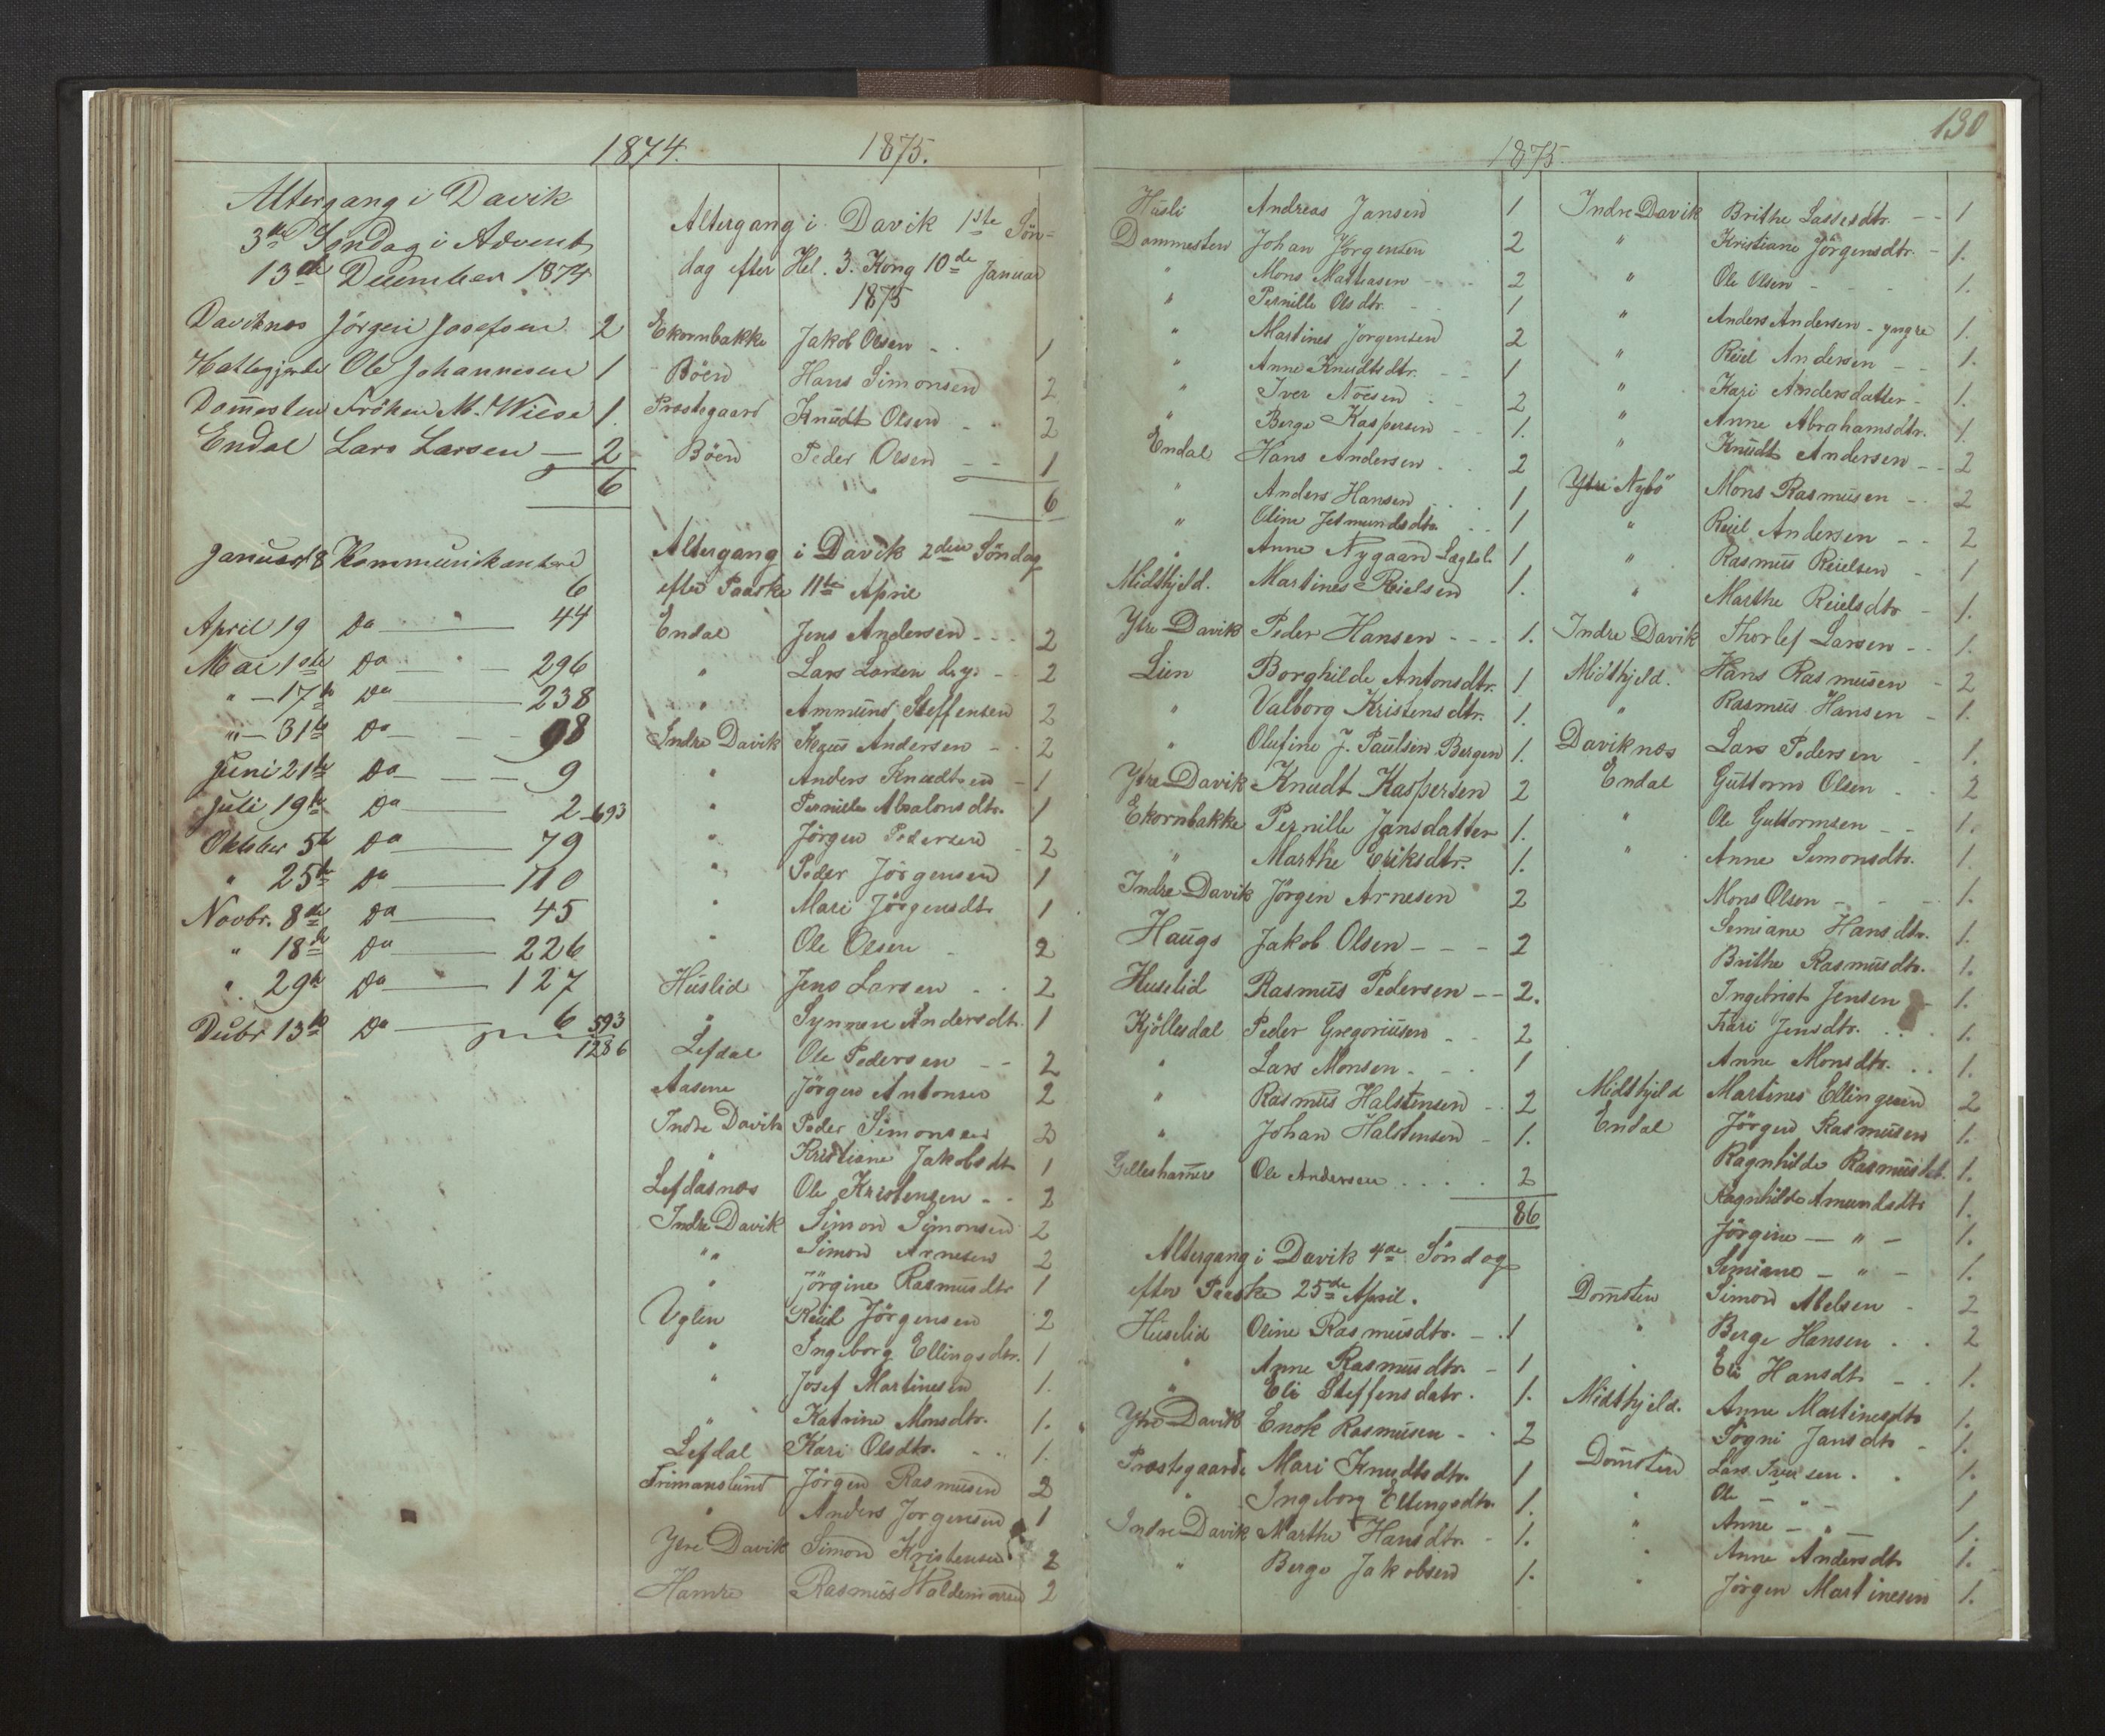 1874.
Altergang i Davik
3die Søndag i Advent
13de December 1874
Daviknes Jörgen Josefsen 2
Hattegjerde Ole Johannesen 1
Dom̅esten Fröken M. Wiese 1.
Endal Lars Larsen — 2
6
Januar 8 Kommunikantere 6
April 19 Do " 44
Mai 1ste Do " 296
" 17de Do 238
" 31te Do 98
Juni 21de Do 9
Juli 19de Do 2 693
Oktober 5te Do 79
" 25te Do 110
Novbr. 8de Do 45
" 18de Do 226
" 29de Do " 127
Decbr 13de Do 6 593
1286
1875.
Altergang i Davik 1ste Søn-
dag efter Hel. 3. Kong 10de Januar
1875
Ekornbakke Jakob Olsen 1
Böen Hans Simonsen 2
Præstegaard Knudt Olsen 2
Böen Peder Olsen 1
6
Altergang i Davik 2den Søndag
efter Paaske 11te April
Endal Jens Andersen 2
" Lars Larsen 2
" Ammund Steffensen 2
Indre Davik Andersen 2
" Anders Knudtsen 1
" Pernille Absalonsdtr. 1
" Jörgen Pedersen 2
" Peder Jörgensen 1
" Mari Jörgensdtr 1
" Ole Olsen 2
Huslid Jens Larsen 2
" Synneve Andersdtr. 1
Lefdal Ole Pedersen 2
Aasene Jörgen Antonsen 2
Indre Davik Peder Simonsen 2
" Kristiane Jakobsdtr 1
Lefdasnes Ole Kristensen 2
Indre Davik Simon Symonsen 2
" " Simon Arnesen 2
" Jörgine Rasmusdtr 1
Uglen Reiel Jörgensen 2
" Ingeborg Ellingsdtr. 1
" Josef Martinesen 1.
" Katrine Monsdtr. 1.
Lefdal Kari Olsdtr. 1.
Frimanslund Jörgen Rasmusen 2
" Anders Jorgensen 1
Ytre Davik Simon Kristensen 2
Hamre Rasmus Waldemarsen 2
130
1875.
Husli Andreas Jansen 1
Dommesten Johan Jörgensen 2
" Mons Mathiasen 2
" Pernille Olsdtr. 1
" Martines Jorgensen 2
" Anne Knudtsdtr. 1
" Iver Nöesen 2
" Berge Kaspersen 1.
Endal Hans Andersen 2
" Anders Hansen 1
" Oline Jetmundsdtr. 1
" Anne Nygaard 1
Midthjeld. Martines Reielsen 1.
Ytre Davik Peder Hansen 1.
Lien Borghilde Antonsdtr. 1
" Valborg Kristensdtr. 1.
" Olufine J. Paulsen Bergen 1.
Ytre Davik Knudt Kaspersen 2
Ekornbakke Pernille Jansdatter 1.
" Marthe Eriksdtr. 1.
Indre Davik Jörgen Arnesen 2
Haugs Jakob Olsen 2
Huselid Rasmus Pedersen 2.
Kjöllesdal Peder Gregoriusen 2
" Lars Monsen 1
" Rasmus Halstensen 2
" Johan Halstensen 1.
Gilleshammer Ole Andersen 2
86
Altergang i Davik 4de Søndag
efter Paaske 25de April.
Huselid Oline Rasmusdtr. 1
" Anne Rasmusdtr. 1
" Eli Steffensdatr. 1.
Ytre Davik Enok Rasmusen 2
Præstegaard Mari Knudtsdtr. 1
" Ingeborg Ellingsdtr. 1.
Indre Davik Marthe Hansdtr. 1.
" Berge Jakobsen 1.
Indre Davik Brithe Lassesdtr. 1
" Kristiane Jörgensdtr. 1.
" Ole Olsen 1.
" Anders Andersen - yngre 1.
" Reiel Andersen 1.
" Kari Andersdatter 1.
" Anne Abrahamsdtr. 1.
" Knudt Andersen 2
Ytre Nybö Mons Rasmusen 2
" Reiel Andersen 2
" Rasmus Reielsen 1
" Marthe Reielsdtr 1.
Indre Davik Thorlef Larsen 1.
Midthjeld. Hans Rasmusen 2
" Rasmus Hansen 1.
Daviknes Lars Pedersen 1.
Endal Guttorm Olsen 2
" Ole Guttormsen 1.
" Anne Simonsdtr. 1.
Mons Olsen 1.
Simiane Hansdtr. 1.
Brithe Rasmusdtr. 1.
Ingebrigt Jensen 1.
Kari Jensdtr. 1.
Anne Monsdtr. 1.
Midthjeld Martines Ellingsen 2
Endal Jörgen Rasmusen 1.
Ragnhilde Rasmusdtr. 1.
Ragnhilde Amundsdtr 1.
Jörgine — " — 1.
Simiane — " — 1.
Dom̅sten Simon Abelsen 2
" Berge Hansen 2
" Eli Hansdtr 1.
Midthjeld. Anne Martinesdtr 1.
Sogni Jansdtr 1.
Dom̅sten Lars Iversen 1.
" Ole — " — 1
" Anne — " — 1.
" Anne Andersdtr 1.
" Jörgen Martinesen 1.